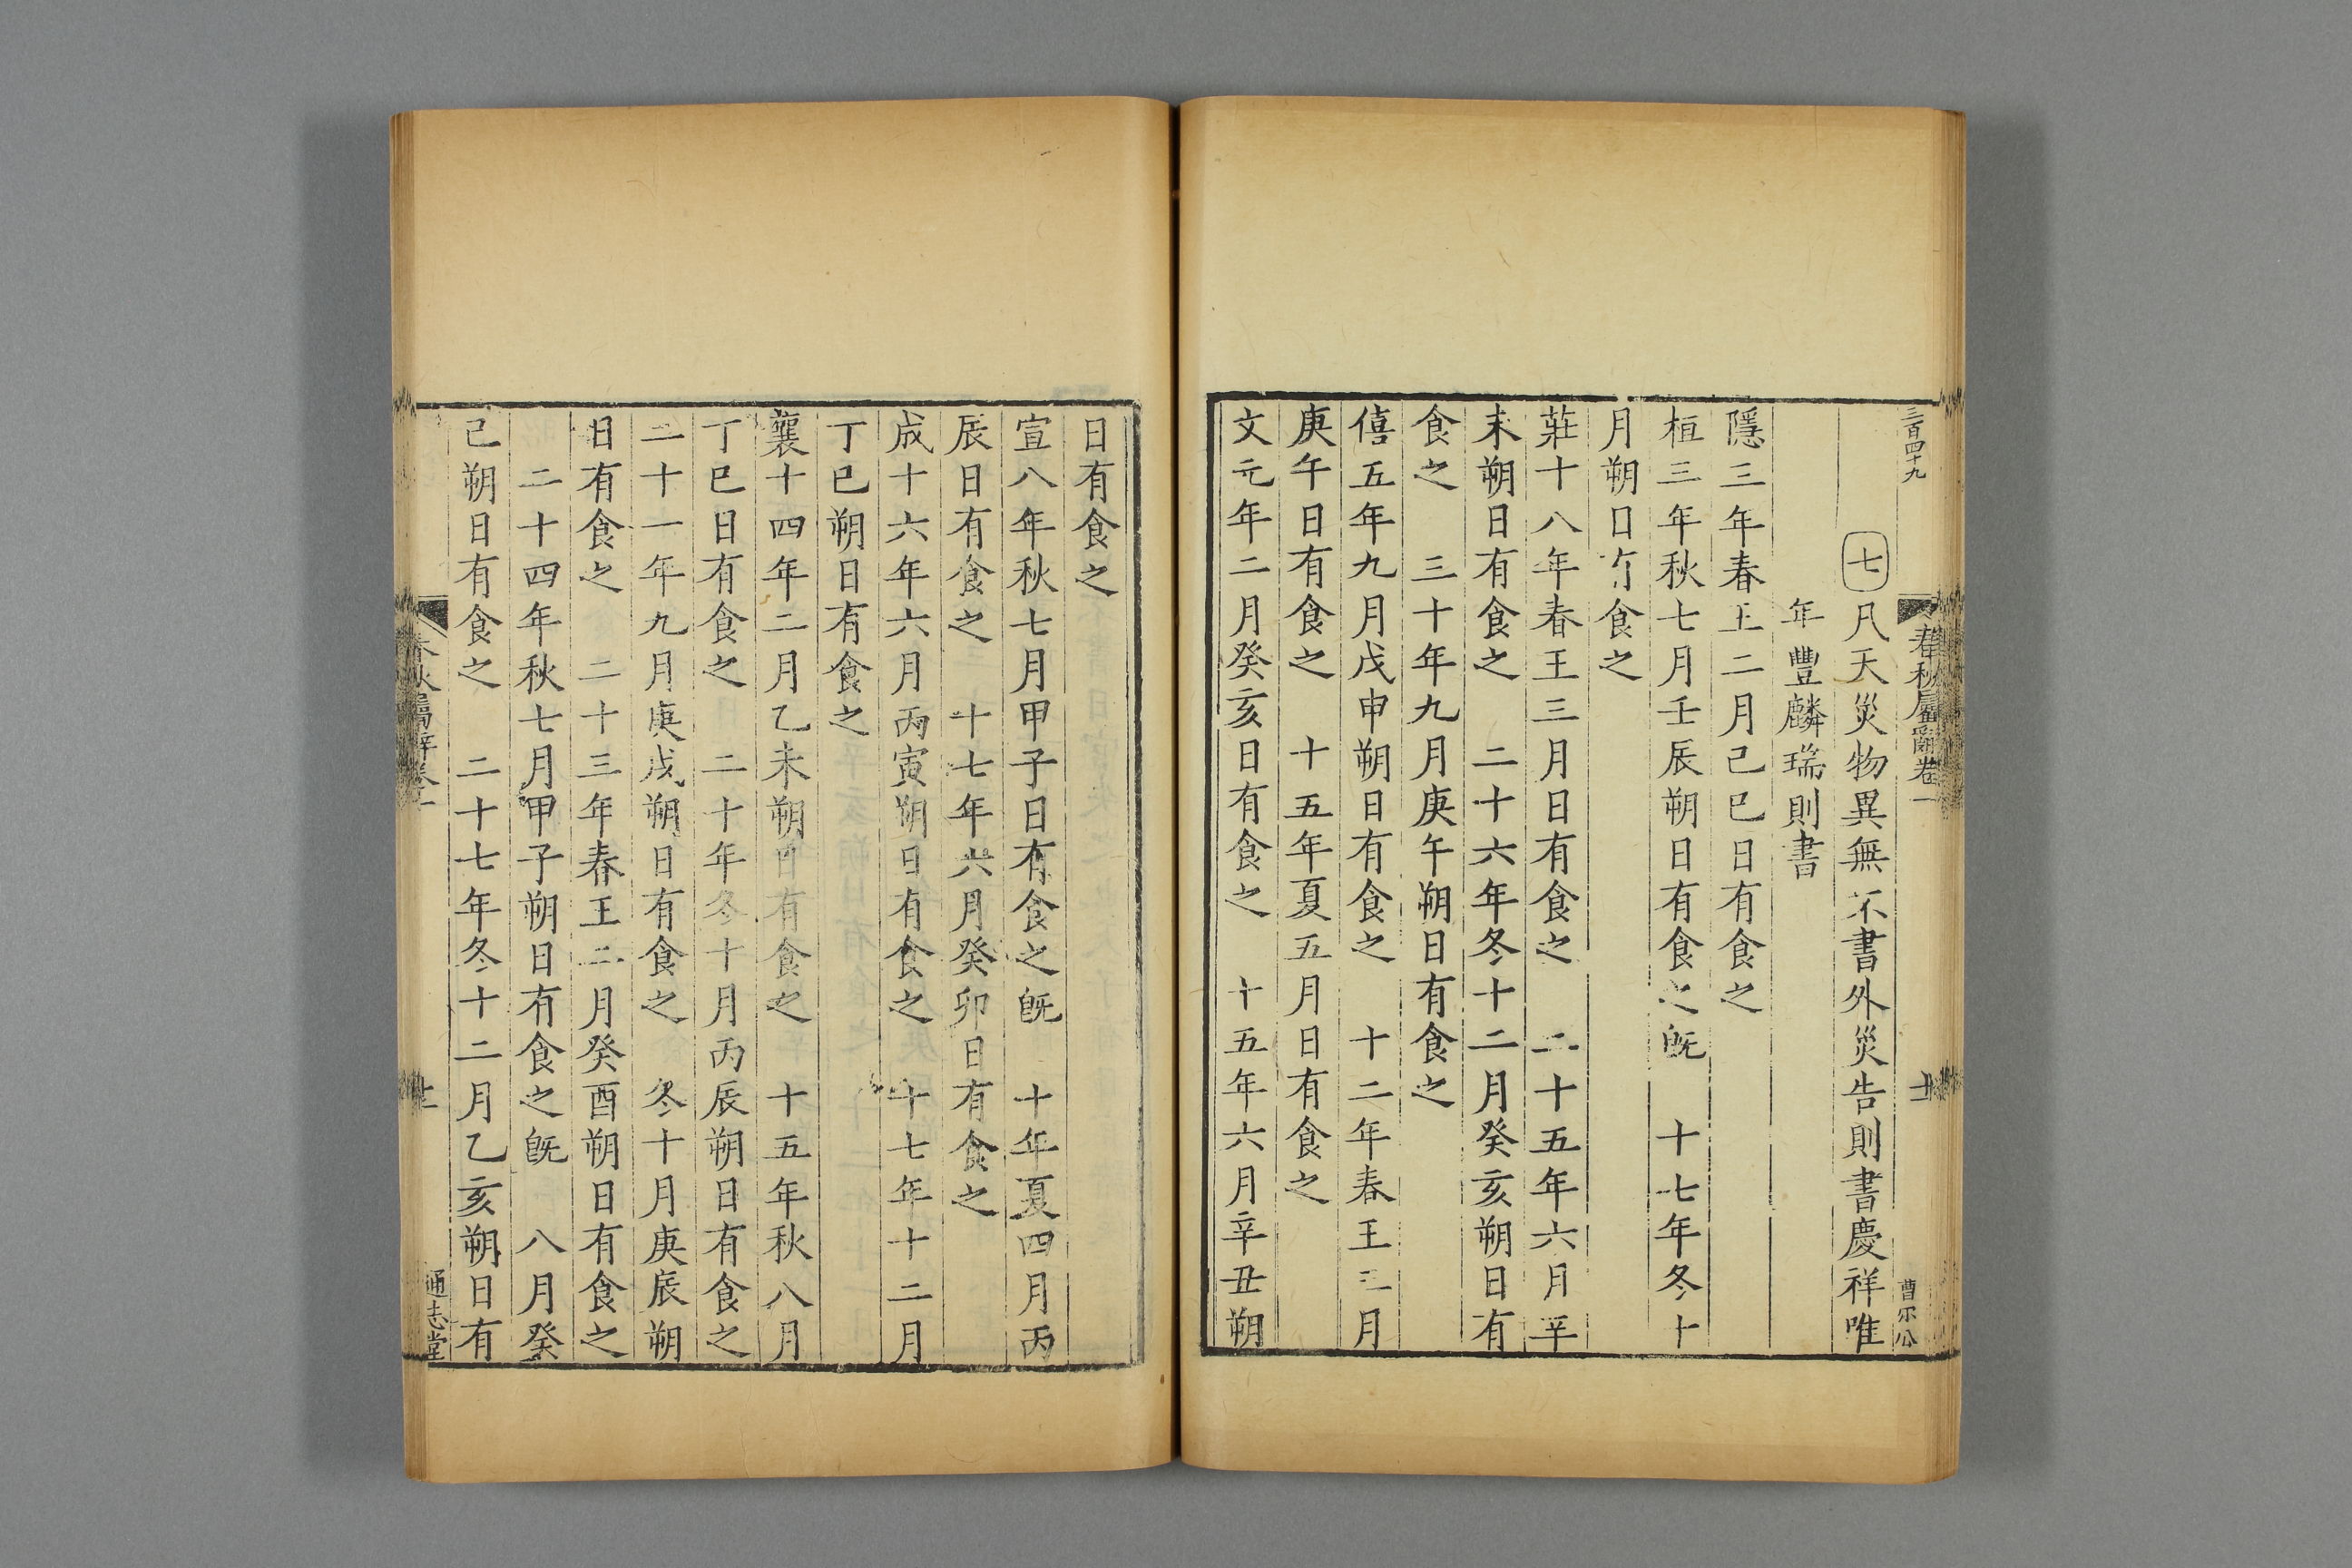 三百四十九
春秋屬辭卷一
曹尔公
七凡天災物異無不書外災告則書慶祥唯
年豐麟瑞則書
隱三年春王二月己巳日有食之
桓三年秋七月壬辰朔日有食之旣 十七年冬十
月朔日有食之
莊十八年春王三月日有食之 二十五年六月辛
未朔日有食之 二十六年冬十二月癸亥朔日有
食之 三十年九月庚午朔日有食之
僖五年九月戊申朔日有食之 十二年春王三月
庚午日有食之 十五年夏五月日有食之
文元年二月癸亥日有食之 十五年六月辛丑朔
日有食之
宣八年秋七月甲子日有食之旣 十年夏四月丙
辰日有食之 十七年六月癸卯日有食之
成十六年六月丙寅朔日有食之 十七年十二月
丁巳朔日有食之
襄十四年二月乙未朔日有食之 十五年秋八月
丁巳日有食之 二十年冬十月丙辰朔日有食之
二十一年九月庚戌朔日有食之 冬十月庚辰朔
日有食之 二十三年春王二月癸酉朔日有食之
二十四年秋七月甲子朔日有食之旣 八月癸
己朔日有食之 二十七年冬十二月乙亥朔日有
春秋屬辭卷一
通志堂